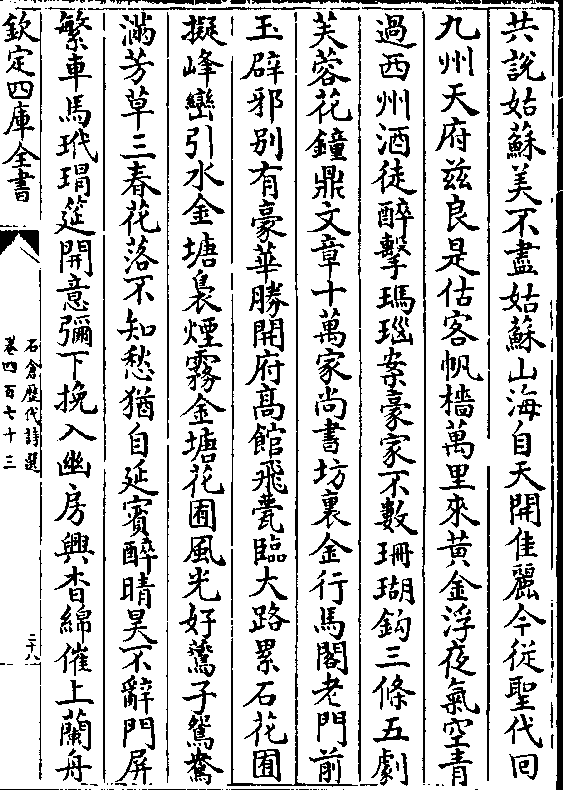 共說姑蘇美不盡姑蘇山海自天開佳麗今從聖代回
九州天府兹良是估客帆檣萬里來黃金浮夜氣空青
過西州酒徒醉擊瑪瑙案豪家不數珊瑚鈎三條五劇
芙蓉花鐘鼎文章十萬家尚書坊裏金行馬閣老門前
玉辟邪别有豪華勝開府高館飛甍臨大路累石花圃
擬峰巒引水金塘裊煙霧金塘花圃風光好鶯子鴛鴦
滿芳草三春花落不知愁猶自延賓醉晴昊不辭門屏
繁車馬玳瑁筵開意彌下挽入幽房興杳綿催上蘭舟
欽定四庫全書
石倉歷代詩選
卷四百七十三
二十八